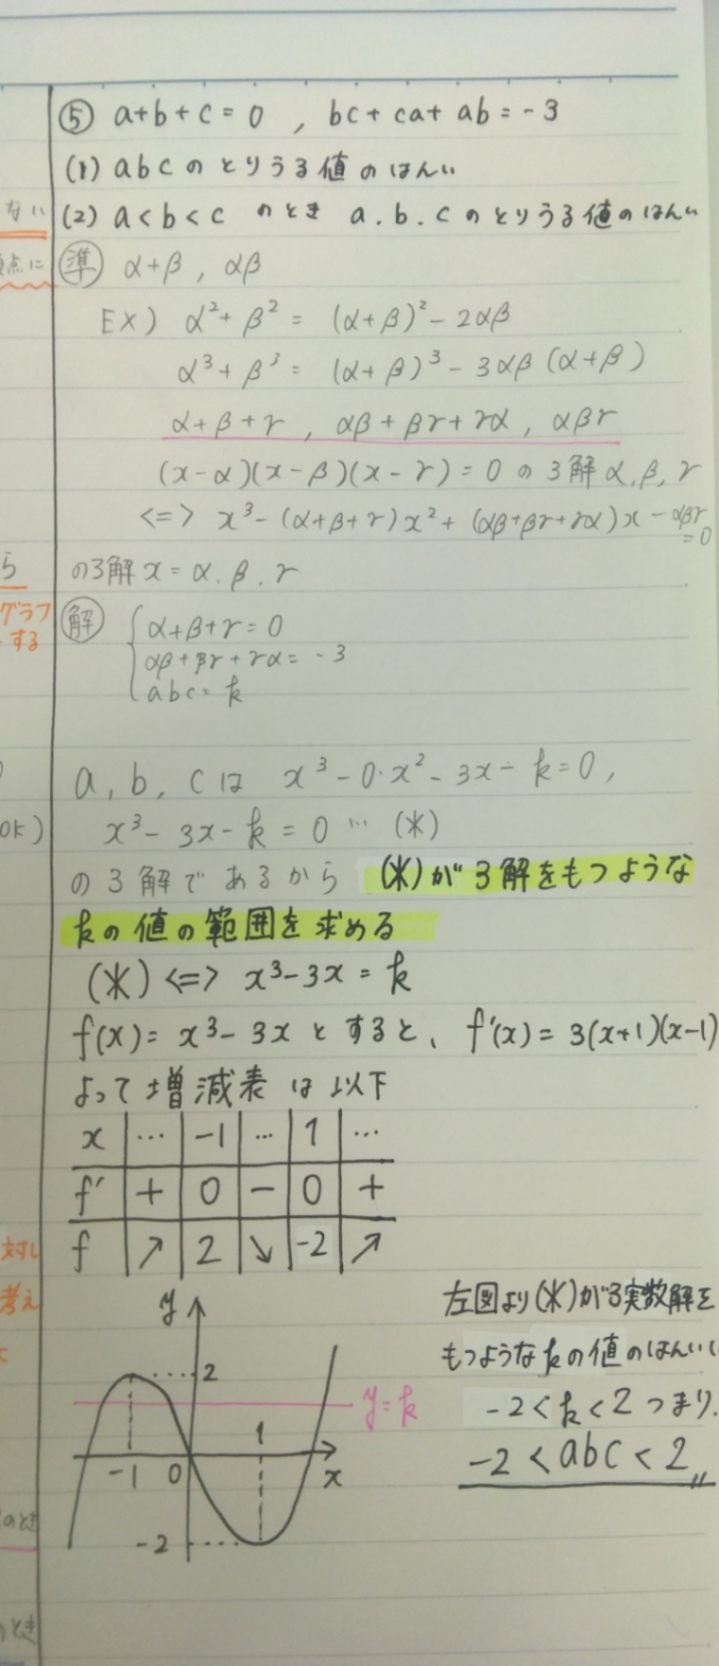 ⑤ a+b+c=0 , bc+ca+ab=-3
(1) abc のとりうる値のはんい
(2) a<b<c のとき a.b.cのとりうる値のはんい
ない
点に
準 α+β , αβ
EX) α²+β² = (α+β)²-2αβ
α³+β³ = (α+β)³-3αβ(α+β)
α+β+γ , αβ+βγ+γα, αβγ
(x-α)(x-β)(x-γ)=0 の3解α,β,γ
<=> x³-(α+β+γ)x²+(αβ+βγ+γα)x-αβγ=0
ら
の3解 x=α.β.γ
グラフ
する
解 { α+β+γ=0
αβ+βγ+γα=-3
abc=k
a, b, c は x³-0・x²-3x-k=0,
OK)
x³-3x-k=0 … (*)
の3解であるから (*)が3解をもつような
kの値の範囲を求める
(*) <=> x³-3x=k
f(x)=x³-3xとすると、f'(x)=3(x+1)(x-1)
よって増減表は以下
x … -1 … 1 …
f' + 0 - 0 +
f ↗ 2 ↘ -2 ↗
対し
考え
y
2
y=k
-1 0 1 x
-2
左図より(*)が3実数解を
もつようなkの値のはんい
-2<k<2 つまり.
-2<abc<2
のとき
のとき